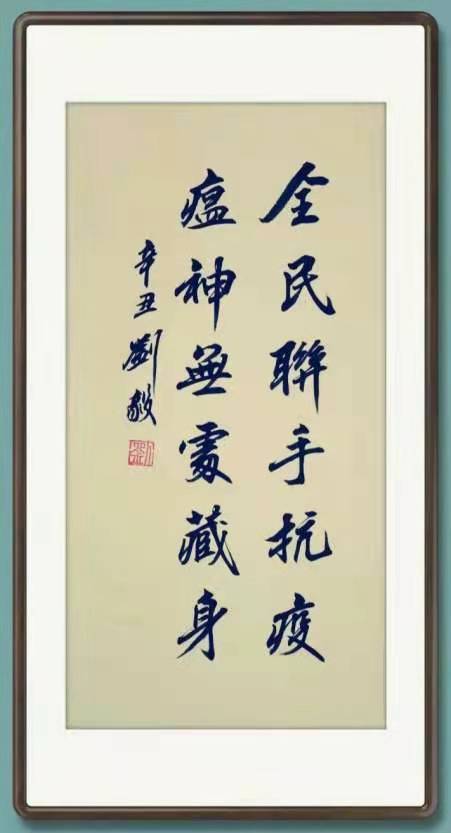 全民聯手抗疫
瘟神無處藏身
辛丑劉毅